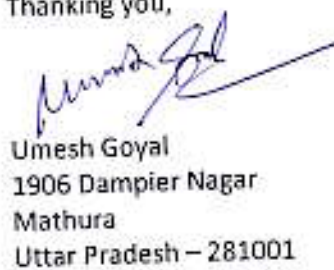 Thanking you,
Umesh Goyal
1906 Dampier Nagar
Mathura
Uttar Pradesh – 281001